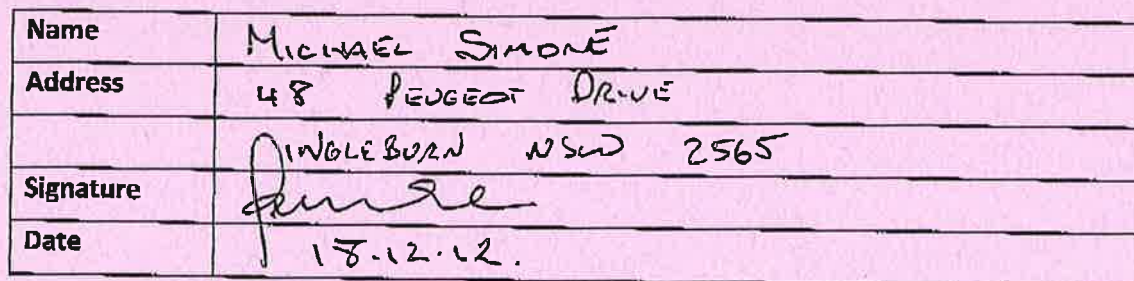 Name MICHAEL SIMONE
Address 48 PEUGEOT DRIVE
INGLEBURN NSW 2565
Signature
Date 18.12.12.